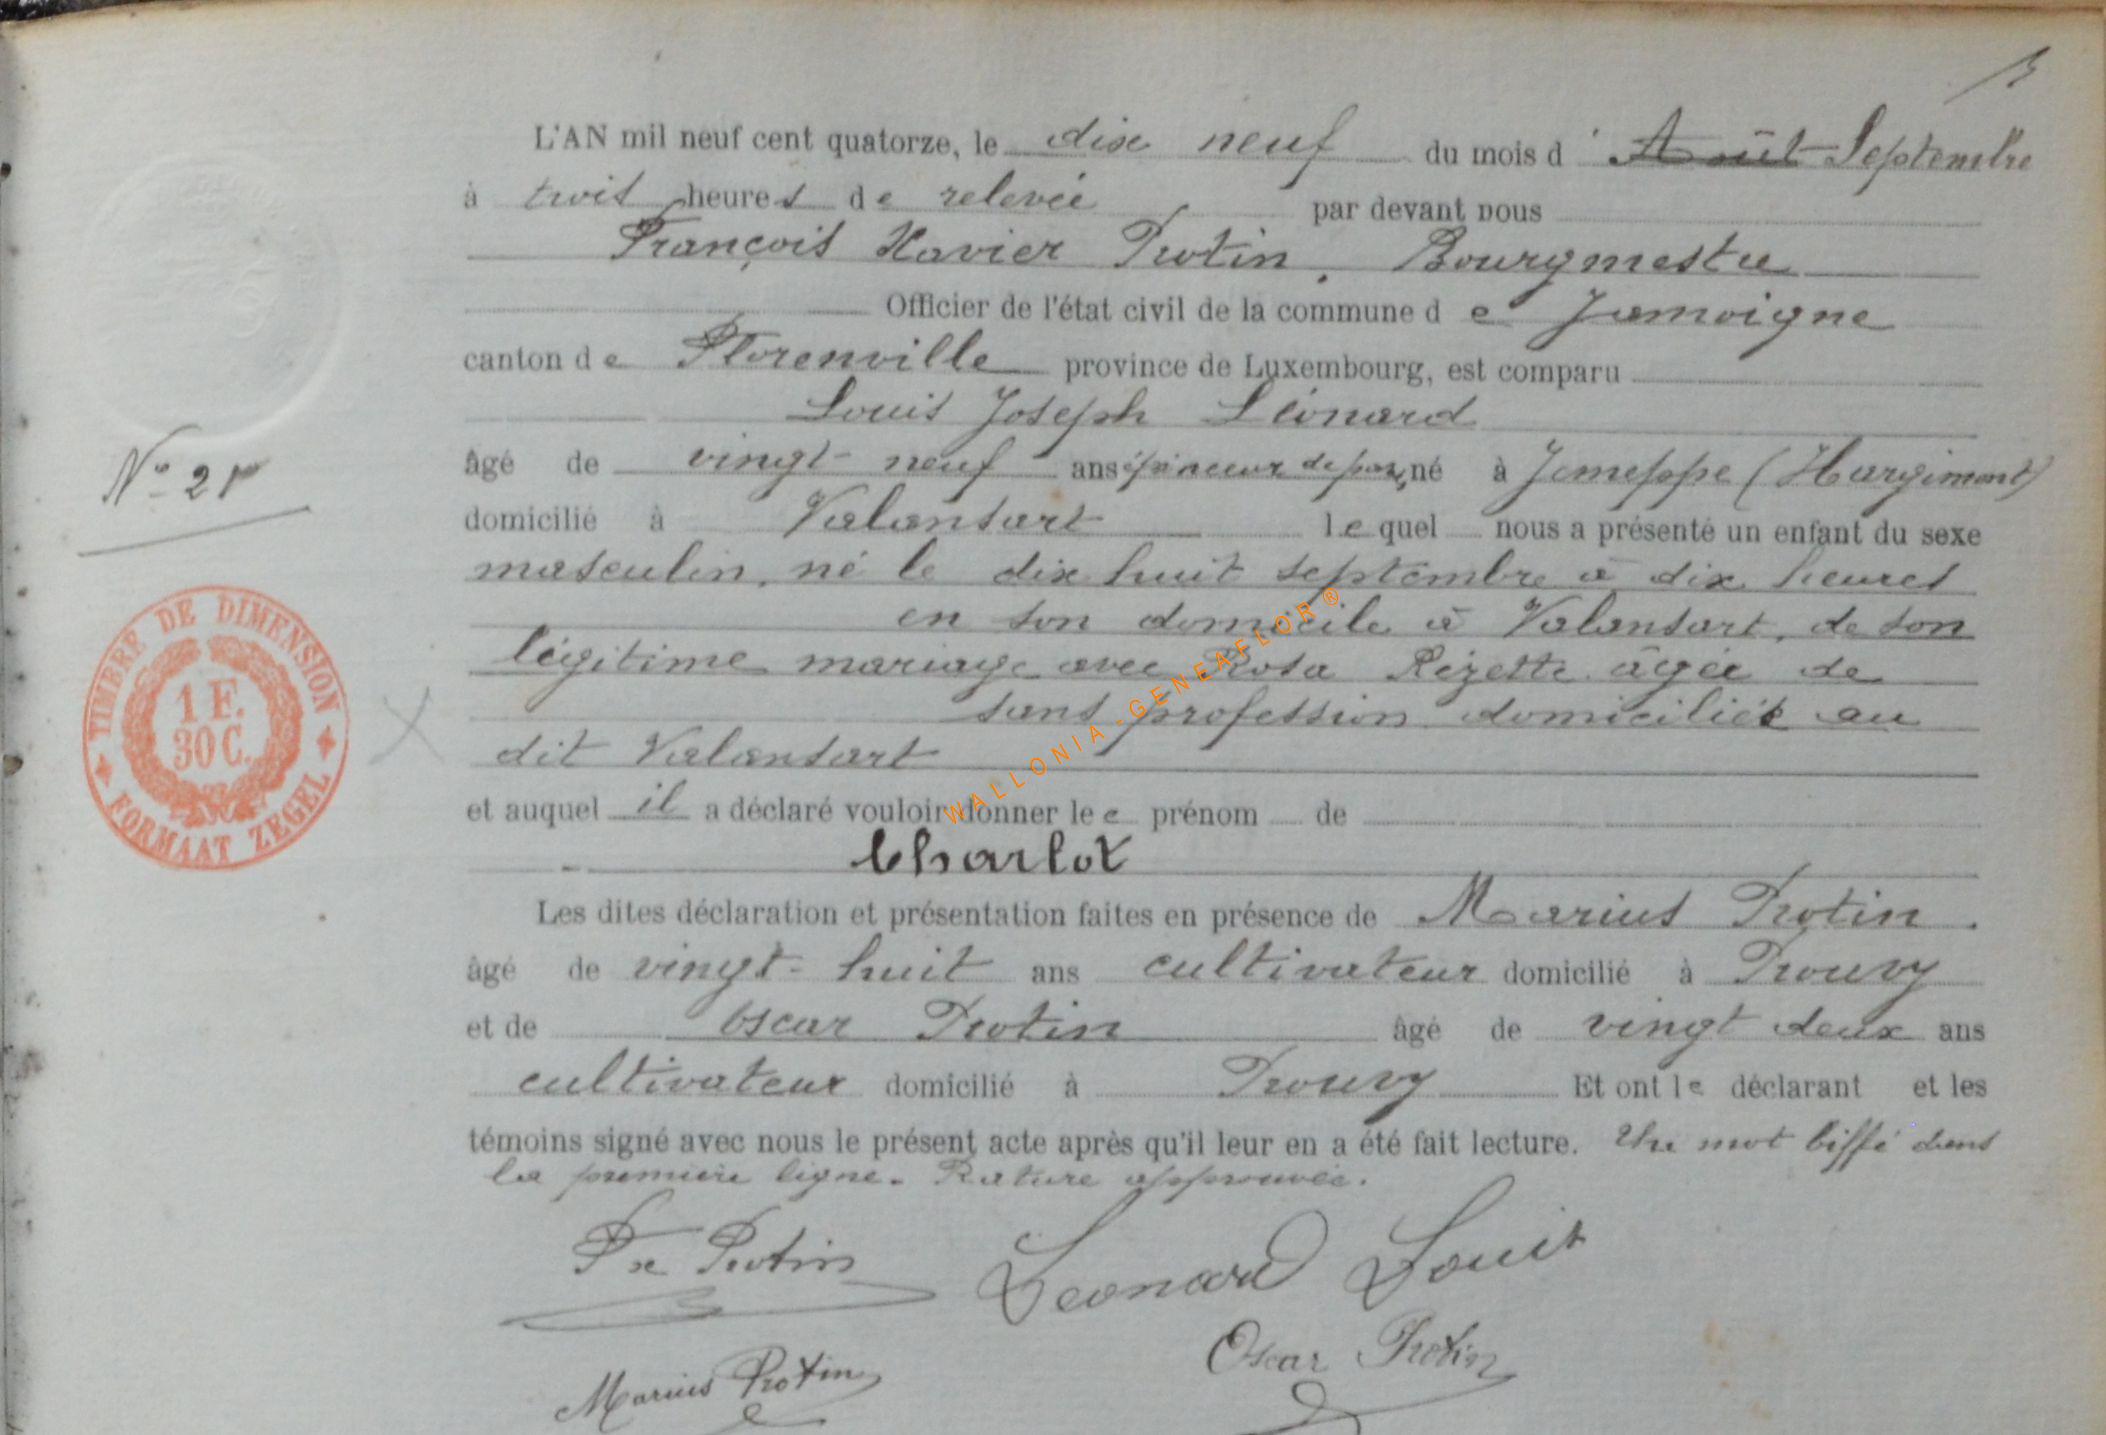 L'AN mil neuf cent quatorze, le dix neuf du mois d' Août Septembre
à trois heures de relevée par devant nous
François Xavier Protin, Bourgmestre
Officier de l'état civil de la commune de Jamoigne
canton de Florenville province de Luxembourg, est comparu
Louis Joseph Léonard
âgé de vingt-neuf ans, né à Jemeppe (Hargimont)
domicilié à Valansart lequel nous a présenté un enfant du sexe
masculin, né le dix huit septembre à dix heures
en son domicile à Valansart, de son
légitime mariage avec Rosa Rézette âgée de
sans profession domiciliée au
dit Valansart
et auquel il a déclaré vouloir donner le prénom de
Charlot
Les dites déclaration et présentation faites en présence de Marius Protin
âgé de vingt-huit ans cultivateur domicilié à Prouvy
et de Oscar Protin âgé de vingt deux ans
cultivateur domicilié à Prouvy Et ont le déclarant et les
témoins signé avec nous le présent acte après qu'il leur en a été fait lecture. Un mot biffé dans
la première ligne. Rature approuvée.
Fx Protin
Leonard Louis
Marius Protin
Oscar Protin
N° 21
TIMBRE DE DIMENSION
1 F.
30 C.
FORMAAT ZEGEL
WALLONIA-GENEAFLOR®